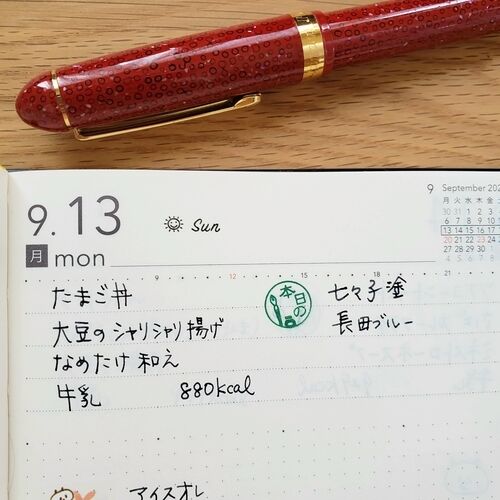 9 September 202
月 火 水 木 金
30 31 1 2 3
6 7 8 9 10
13 14 15 16 17
20 21 22 23 24
27 28 29 30
9.13
Sun
月 mon
9 12 15 18 21
たまご丼
本日の
七々子塗
大豆のシャリシャリ揚げ
長田ブルー
なめたけ和え
牛乳 880kcal
アイスオレ